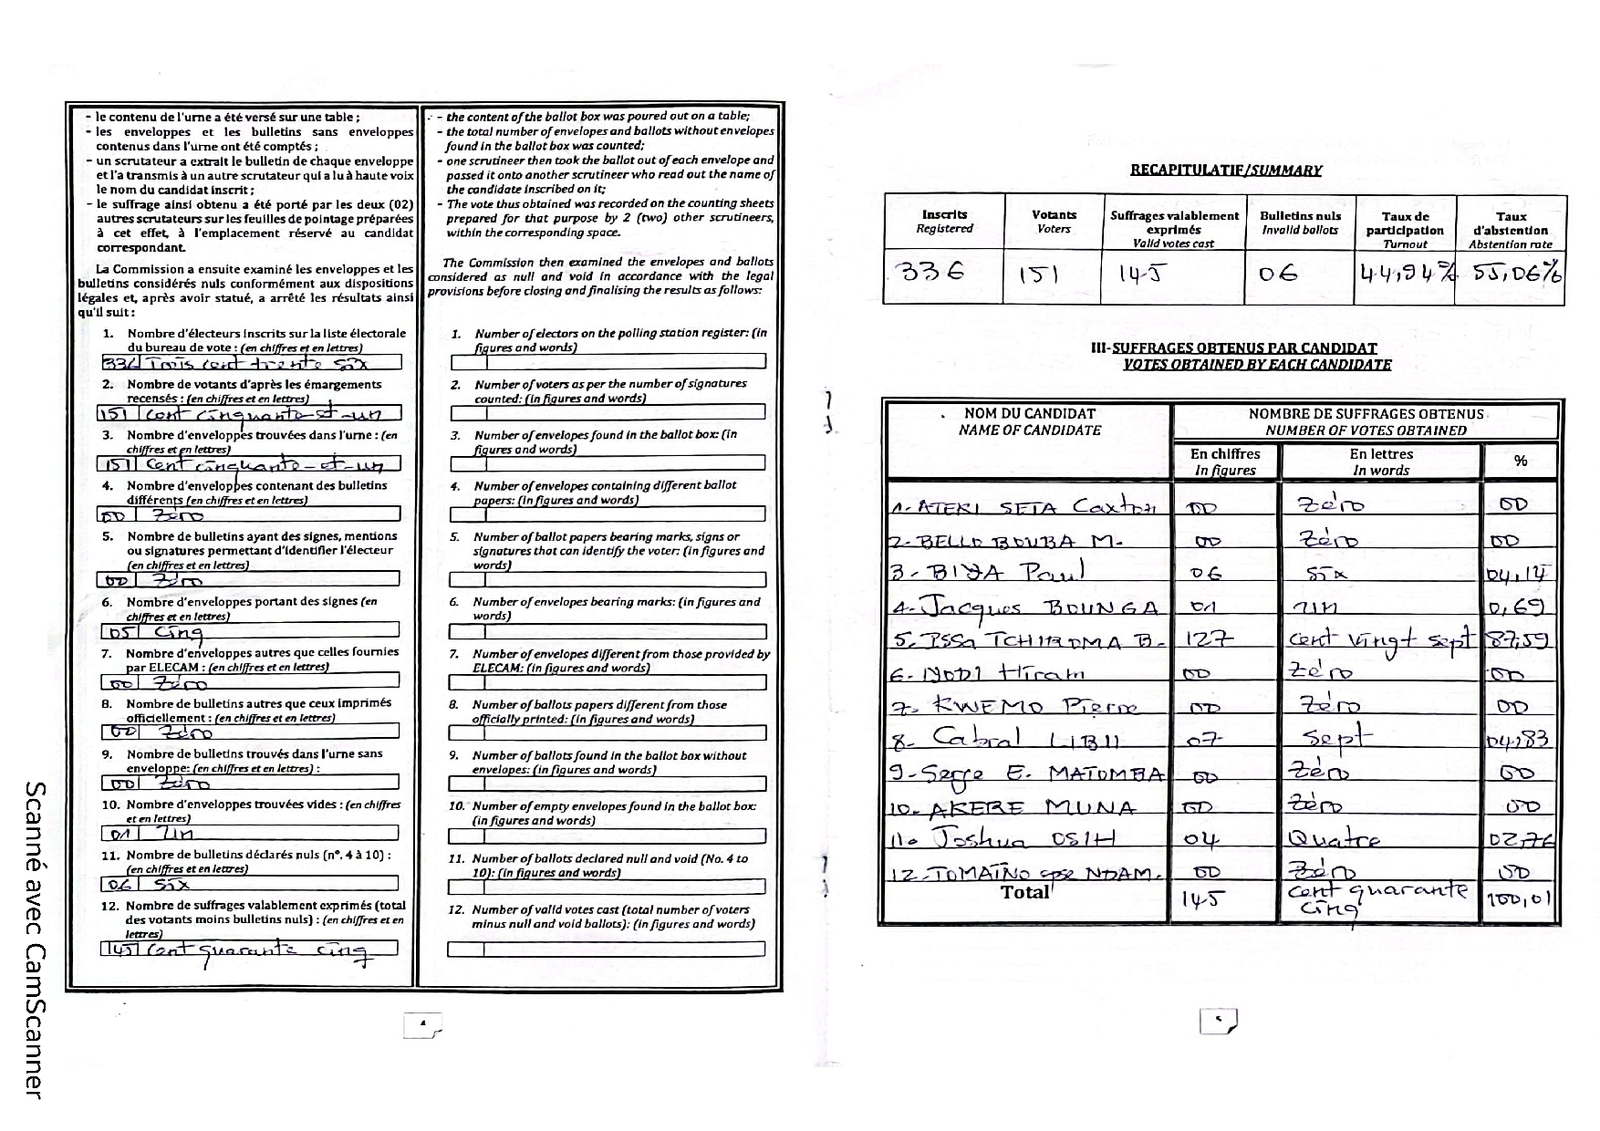 - le contenu de l'urne a été versé sur une table ;
- les enveloppes et les bulletins sans enveloppes
contenus dans l'urne ont été comptés ;
- un scrutateur a extrait le bulletin de chaque enveloppe
et l'a transmis à un autre scrutateur qui a lu à haute voix
le nom du candidat inscrit ;
- le suffrage ainsi obtenu a été porté par les deux (02)
autres scrutateurs sur les feuilles de pointage préparées
à cet effet, à l'emplacement réservé au candidat
correspondant.
La Commission a ensuite examiné les enveloppes et les
bulletins considérés nuls conformément aux dispositions
légales et, après avoir statué, a arrêté les résultats ainsi
qu'il suit :
1. Nombre d'électeurs inscrits sur la liste électorale
du bureau de vote : (en chiffres et en lettres)
336 Trois cent trente six
2. Nombre de votants d'après les émargements
recensés : (en chiffres et en lettres)
151 cent cinquante-et-un
3. Nombre d'enveloppes trouvées dans l'urne : (en
chiffres et en lettres)
151 cent cinquante-et-un
4. Nombre d'enveloppes contenant des bulletins
différents (en chiffres et en lettres)
00 Zéro
5. Nombre de bulletins ayant des signes, mentions
ou signatures permettant d'identifier l'électeur
(en chiffres et en lettres)
00 Zéro
6. Nombre d'enveloppes portant des signes (en
chiffres et en lettres)
05 cinq
7. Nombre d'enveloppes autres que celles fournies
par ELECAM : (en chiffres et en lettres)
00 Zéro
8. Nombre de bulletins autres que ceux imprimés
officiellement : (en chiffres et en lettres)
00 Zéro
9. Nombre de bulletins trouvés dans l'urne sans
enveloppe: (en chiffres et en lettres) :
00 Zéro
10. Nombre d'enveloppes trouvées vides : (en chiffres
et en lettres)
01 un
11. Nombre de bulletins déclarés nuls (n°. 4 à 10) :
(en chiffres et en lettres)
06 six
12. Nombre de suffrages valablement exprimés (total
des votants moins bulletins nuls) : (en chiffres et en
lettres)
145 cent quarante cinq
- the content of the ballot box was poured out on a table;
- the total number of envelopes and ballots without envelopes
found in the ballot box was counted;
- one scrutineer then took the ballot out of each envelope and
passed it onto another scrutineer who read out the name of
the candidate inscribed on it;
- The vote thus obtained was recorded on the counting sheets
prepared for that purpose by 2 (two) other scrutineers,
within the corresponding space.
The Commission then examined the envelopes and ballots
considered as null and void in accordance with the legal
provisions before closing and finalising the results as follows:
1. Number of electors on the polling station register: (in
figures and words)
2. Number of voters as per the number of signatures
counted: (in figures and words)
3. Number of envelopes found in the ballot box: (in
figures and words)
4. Number of envelopes containing different ballot
papers: (in figures and words)
5. Number of ballot papers bearing marks, signs or
signatures that can identify the voter: (in figures and
words)
6. Number of envelopes bearing marks: (in figures and
words)
7. Number of envelopes different from those provided by
ELECAM: (in figures and words)
8. Number of ballots papers different from those
officially printed: (in figures and words)
9. Number of ballots found in the ballot box without
envelopes: (in figures and words)
10. Number of empty envelopes found in the ballot box:
(in figures and words)
11. Number of ballots declared null and void (No. 4 to
10): (in figures and words)
12. Number of valid votes cast (total number of voters
minus null and void ballots): (in figures and words)
4
RECAPITULATIF/SUMMARY
Inscrits Votants Suffrages valablement Bulletins nuls Taux de Taux
Registered Voters exprimés Invalid ballots participation d'abstention
Valid votes cast Turnout Abstention rate
336 151 145 06 44,94% 55,06%
III-SUFFRAGES OBTENUS PAR CANDIDAT
VOTES OBTAINED BY EACH CANDIDATE
NOM DU CANDIDAT NOMBRE DE SUFFRAGES OBTENUS
NAME OF CANDIDATE NUMBER OF VOTES OBTAINED
En chiffres En lettres %
In figures In words
1- ATEKI SETA Caxton 00 Zéro 00
2- BELLO BOUBA M. 00 Zéro 00
3- BIYA Paul 06 six 04,14
4- Jacques BOUNGA 01 un 0,69
5. ISSA TCHIROMA B. 127 cent vingt sept 87,59
6- NODI Hiram 00 Zéro 00
7- KWEMO Pierre 00 Zéro 00
8- Cabral LIBII 07 sept 04,83
9- Serge E. MATOMBA 00 Zéro 00
10- AKERE MUNA 00 Zéro 00
11. Joshua OSIH 04 Quatre 02,76
12- TOMAÏNO epse NDAM. 00 Zéro 00
Total 145 cent quarante cinq 100,01
5
Scanné avec CamScanner